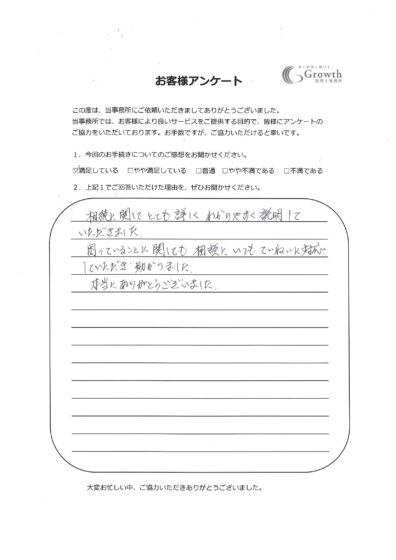 Growth
税理士事務所
お客様アンケート
この度は、当事務所にご依頼いただきましてありがとうございました。
当事務所では、お客様により良いサービスをご提供する目的で、皆様にアンケートの
ご協力をいただいております。お手数ですが、ご協力いただけると幸いです。
1．今回のお手続きについてのご感想をお聞かせください。
☑満足している　□やや満足している　□普通　□やや不満である　□不満である
2．上記1でご回答いただけた理由を、ぜひお聞かせください。
相続に関してとても詳しく わかりやすく説明して
いただきました。
困っていることに関しても 相談に いつもていねいに対応
していただき 助かりました。
本当にありがとうございました。
大変お忙しい中、ご協力いただきありがとうございました。